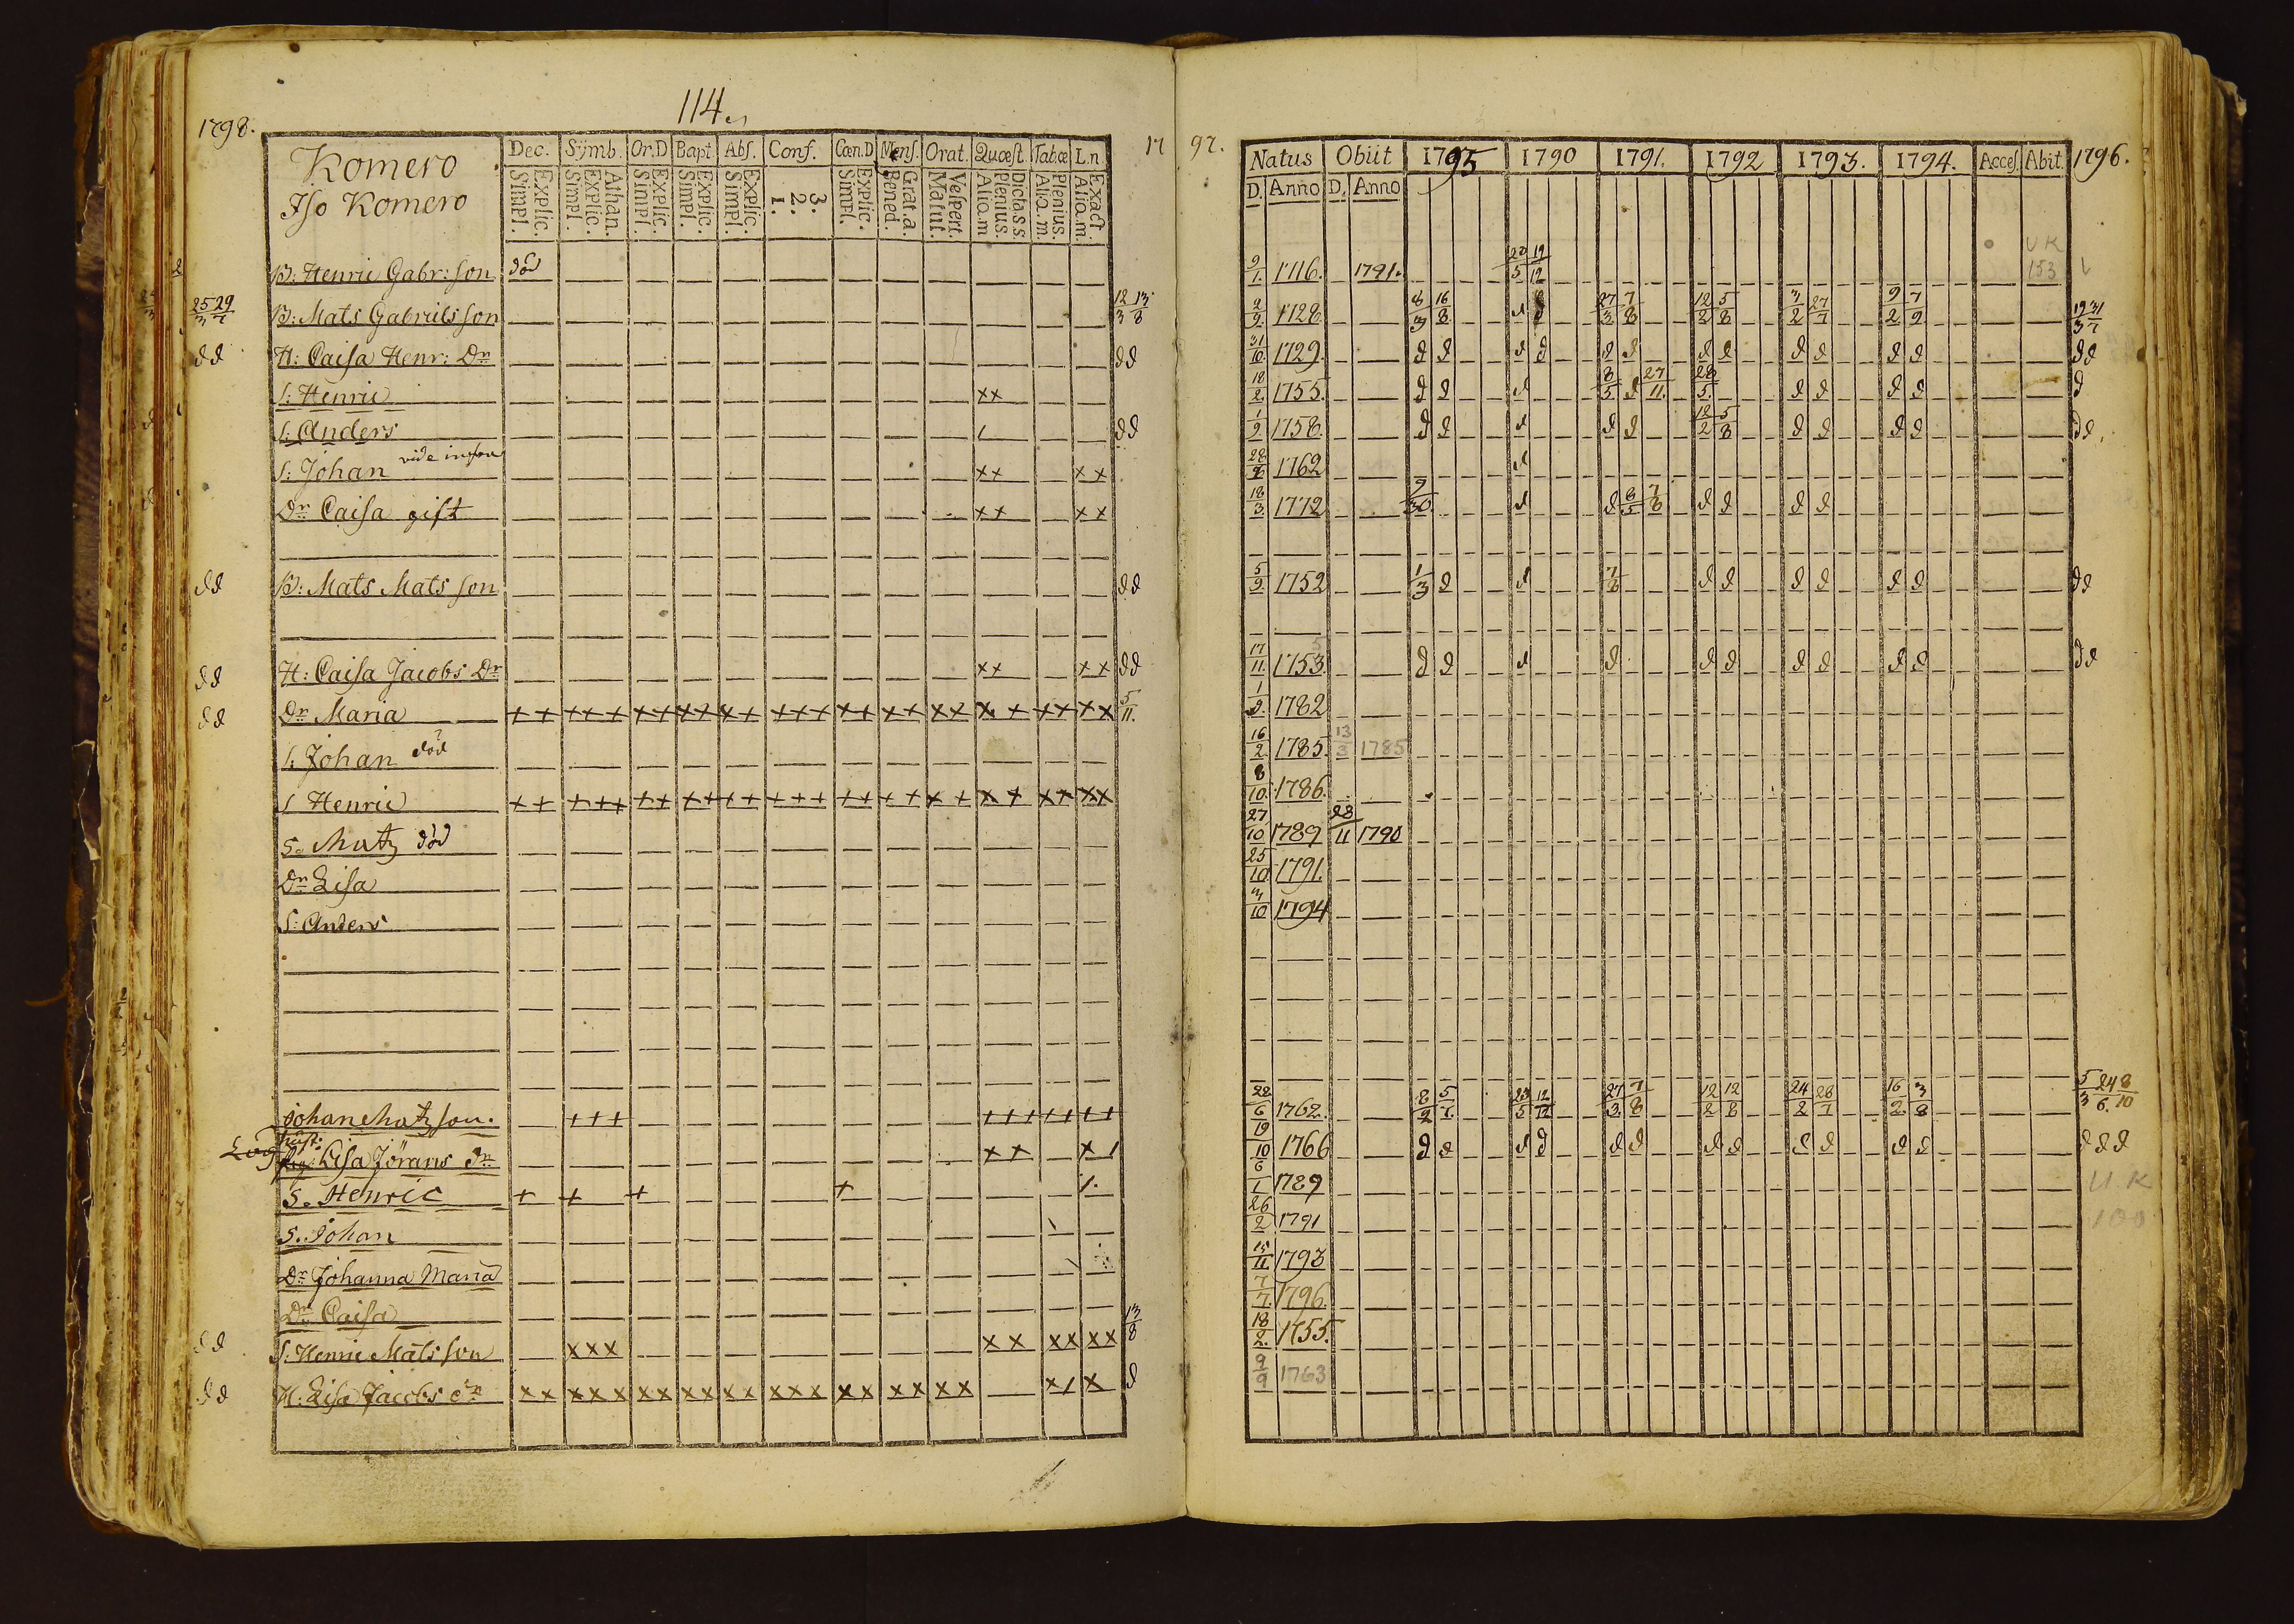 114.
1798.
Komero
Iso Komero
Dec. Symb. Or.D Bapt. Abs. Conf. Cœn.D Mens. Orat. Quæst. Tabæ L.n.
Explic. Simpl. Athan. Explic. Simpl. Explic. Simpl. Explic. Simpl. Explic. Simpl. 3. 2. 1. Explic. Simpl. Grat.a. Bened. Vespert. Matut. Dicta s.s. Plenius. Alio.m. Plenius. Alia.m. Exact. Alia.m.
B: Henric Gabr:son död
25/3 29/7 B: Mats Gabrielsson 12/3 13/8
d d H: Caisa Henr: Dr d d
S: Henric xx
S: Anders / d d
S: Johan vide infra xx xx
Dr Caisa gift xx xx
d d B: Mats Mats son d d
d d H: Caisa Jacobs Dr xx xx d d
d d Dr Maria ++ +++ ++ ++ ++ +++ ++ ++ xx x+ ++ xx 5/11.
S: Johan död
S Henric ++ +++ ++ ++ ++ +++ ++ ++ x+ x+ xx xx
S. Matz död
Dr Lisa
S: Anders
Johan Matzson. +++ +++ ++ ++
hust: Lisa Jörans dr xx x/
S. Henric + + + + /.
S. Johan
Dr Johanna Maria
Dr Caisa
d d S: Henric Mats son xxx xx xx xx 13/8
d d H: Lisa Jacobs dr xx xxx xx xx xx xxx xx xx xx x/ x d
17 97.
Natus Obiit 1795 1790 1791. 1792 1793. 1794. Acces. Abit. 1796.
D. Anno D. Anno
9/1. 1716. 1791. 20/5 19/12 UK 153
2/9. 1728. 8/3 16/8 d d 27/3 7/8 12/2 5/8 3/2 27/7 9/2 7/9 19/3 31/7
31/10. 1729. d d d d d d d d d d d d d d
18/2. 1755. d d d 8/5 d 27/11. 28/5. d d d d d
1/9 1758. d d d d d 12/2 5/8 d d d d d d.
28/6 1762 d
18/3 1772 d d 8/5 7/8 d d d d
5/9. 1752 1/3 d d 7/8 d d d d d d d d
17/11. 1753. d d d d d d d d d d d d
1/9. 1782
16/2 1785. 13/3 1785
8/10. 1786.
27/10 1789 28/11 1790
25/10 1791.
3/10 1794
28/6 1762. 8/2 5/7 23/5 12/12 27/3 7/8 12/2 12/8 24/2 28/7 16/2 3/8 5/3 24/6. 8/10
19/10 1766 d d d d d d d d d d d d d d d
6/1 1789 U K
26/2 1791 100
15/11. 1793
7/7. 1796.
18/2. 1755.
9/9 1763